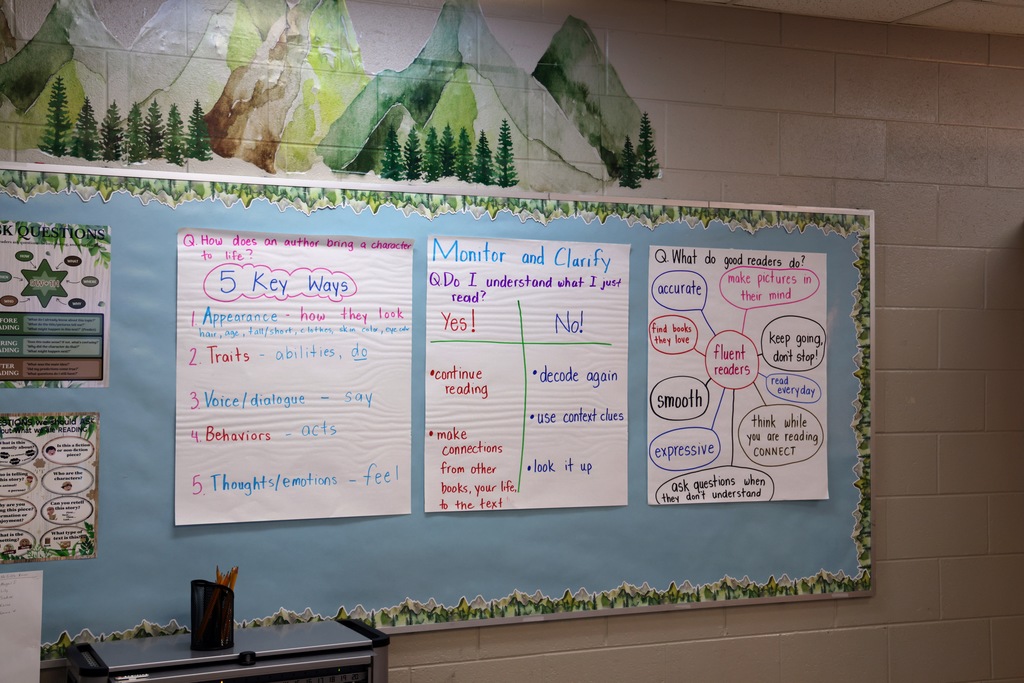 SK QUESTIONS
WHO?
WHY?
Q. How does an author bring a character
to life?
5 Key Ways
1. Appearance - how they look
hair, age, tall/short, clothes, skin color, eye color
2. Traits - abilities, do
3. Voice/dialogue - say
4. Behaviors - acts
5. Thoughts/emotions - feel
Monitor and Clarify
Q. Do I understand what I just
read?
Yes!
No!
•continue
reading
• make
connections
from other
books, your life,
to the text!
• decode again
• use context clues
• look it up
Q. What do good readers do?
accurate
make pictures in
their mind
find books
they love
fluent
readers
keep going,
don't stop!
read
everyday
smooth
think while
you are reading
CONNECT
expressive
ask questions when
they don't understand
Is this a fiction
or non-fiction
piece?
Who are the
characters?
Can you retell
this story?
What type of
text is this?